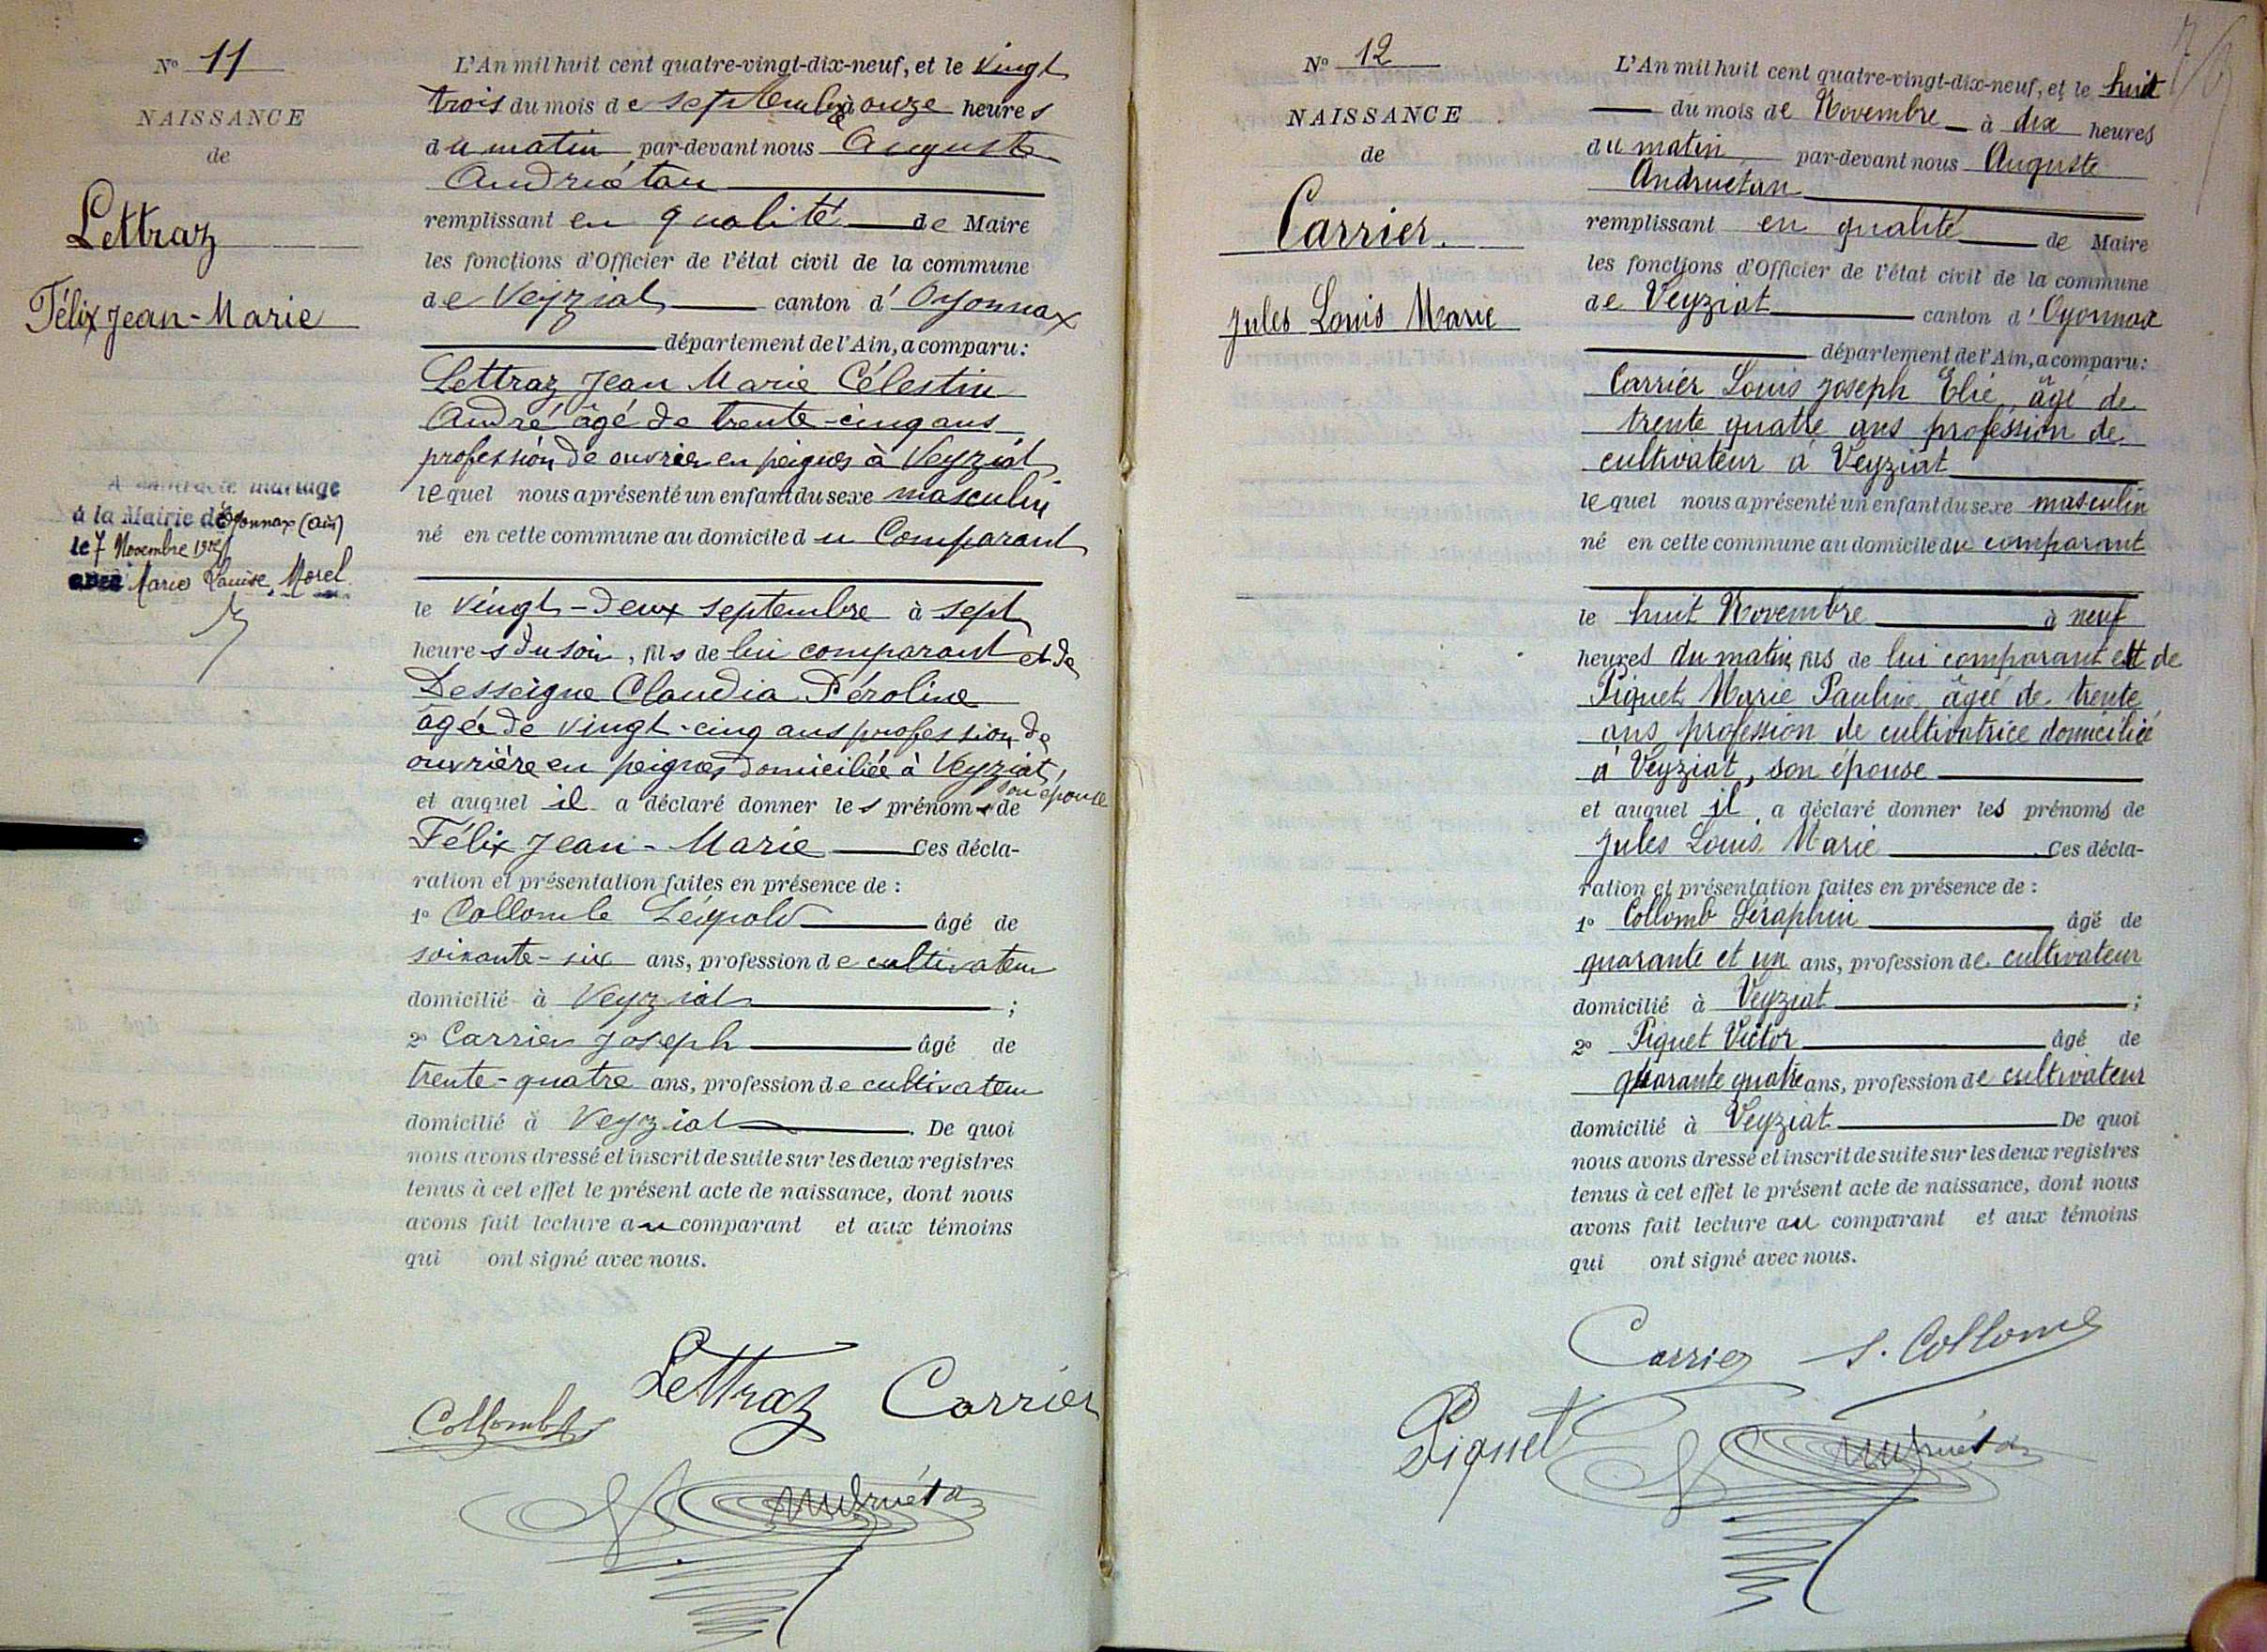 N° 11
NAISSANCE
de
Lettraz
Félix Jean-Marie
A contracté mariage
à la Mairie d'Oyonnax (Ain)
le 7 Novembre
avec Marie Louise Morel
L'An mil huit cent quatre-vingt-dix-neuf, et le vingt
trois du mois de septembre à onze heures
du matin par-devant nous Auguste
Andruétan
remplissant en qualité de Maire
les fonctions d'Officier de l'état civil de la commune
de Veyziat canton d'Oyonnax
département de l'Ain, a comparu:
Lettraz Jean Marie Célestin
André âgé de trente-cinq ans
profession de ouvrier en peignes à Veyziat
lequel nous a présenté un enfant du sexe masculin
né en cette commune au domicile du Comparant
le vingt-deux septembre à sept
heures du soir, fils de lui comparant et de
Desseigne Claudia Péroline
âgée de vingt-cinq ans profession de
ouvrière en peignes domiciliée à Veyziat, son épouse
et auquel il a déclaré donner les prénoms de
Félix Jean-Marie Ces décla-
ration et présentation faites en présence de :
1° Collomb Léopold âgé de
soixante-six ans, profession de cultivateur
domicilié à Veyziat ;
2° Carrier Joseph âgé de
trente-quatre ans, profession de cultivateur
domicilié à Veyziat . De quoi
nous avons dressé et inscrit de suite sur les deux registres
tenus à cet effet le présent acte de naissance, dont nous
avons fait lecture au comparant et aux témoins
qui ont signé avec nous.
Lettraz Carrier
Collomb
Andruétan
N° 12
NAISSANCE
de
Carrier.
Jules Louis Marie
L'An mil huit cent quatre-vingt-dix-neuf, et le huit
du mois de Novembre à dix heures
du matin par-devant nous Auguste
Andruétan
remplissant en qualité de Maire
les fonctions d'Officier de l'état civil de la commune
de Veyziat canton d'Oyonnax
département de l'Ain, a comparu:
Carrier Louis Joseph Elie, âgé de
trente quatre ans profession de
cultivateur à Veyziat
lequel nous a présenté un enfant du sexe masculin
né en cette commune au domicile du comparant
le huit Novembre à neuf
heures du matin, fils de lui comparant et de
Piquet Marie Pauline, âgée de trente
ans profession de cultivatrice domiciliée
à Veyziat, son épouse
et auquel il a déclaré donner les prénoms de
Jules Louis Marie . Ces décla-
ration et présentation faites en présence de :
1° Collomb Séraphin âgé de
quarante et un ans, profession de cultivateur
domicilié à Veyziat ;
2° Piquet Victor âgé de
quarante quatre ans, profession de cultivateur
domicilié à Veyziat De quoi
nous avons dressé et inscrit de suite sur les deux registres
tenus à cet effet le présent acte de naissance, dont nous
avons fait lecture au comparant et aux témoins
qui ont signé avec nous.
Carrier S. Collomb
Piquet
Andruétan